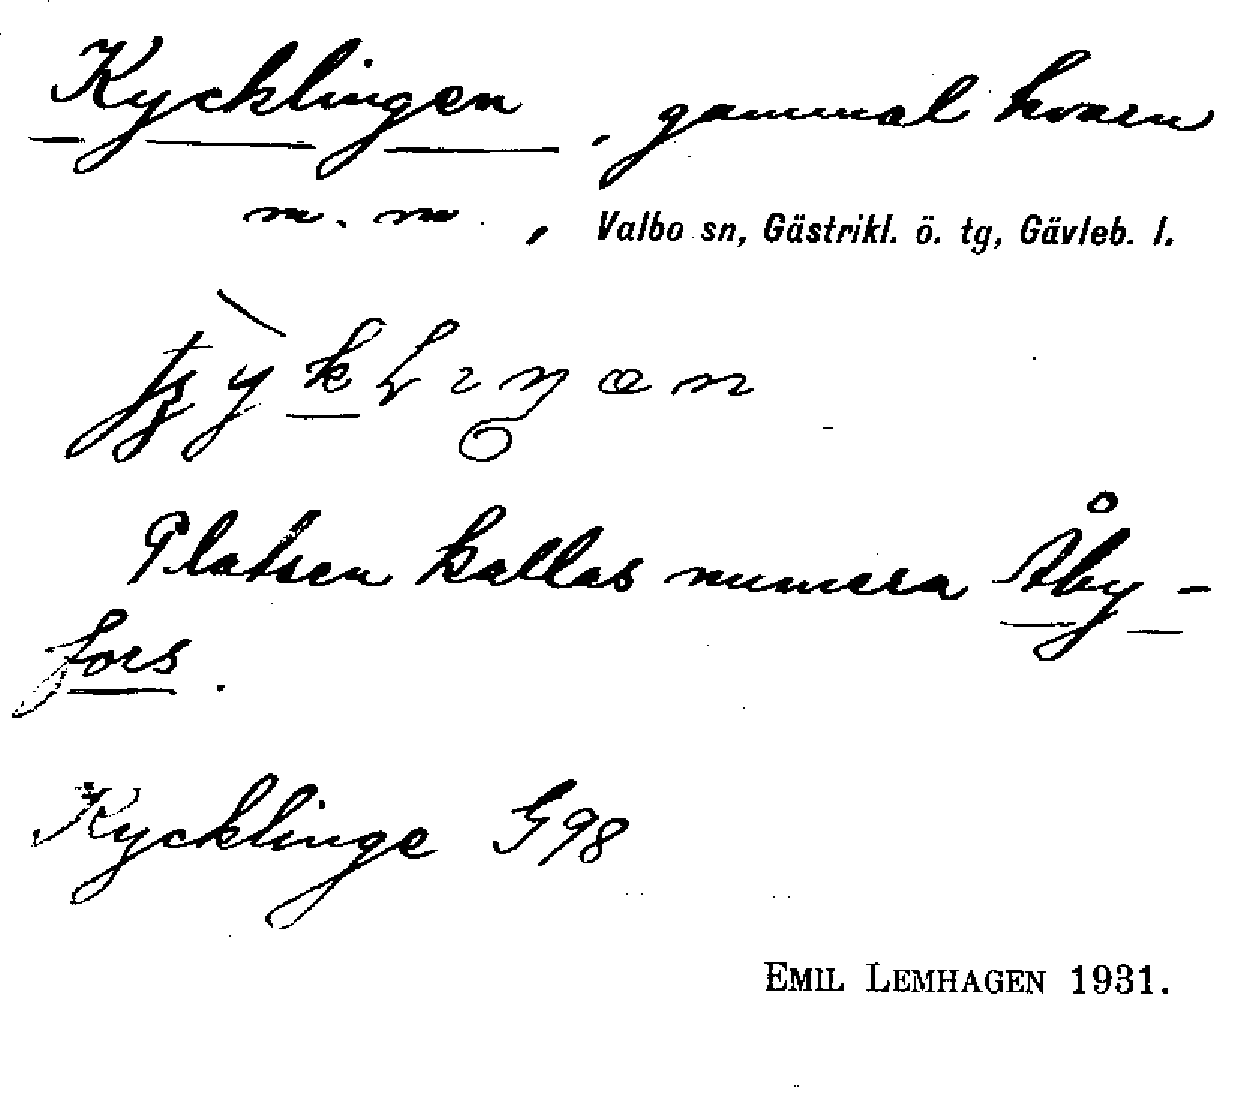 Kycklingen, gammal kvarn
m. m., Valbo sn, Gästrikl. ö. tg, Gävleb. l.
Platsen kallas numera Åby-
fors.
Kycklinge G98
EMIL LEMHAGEN 1931.